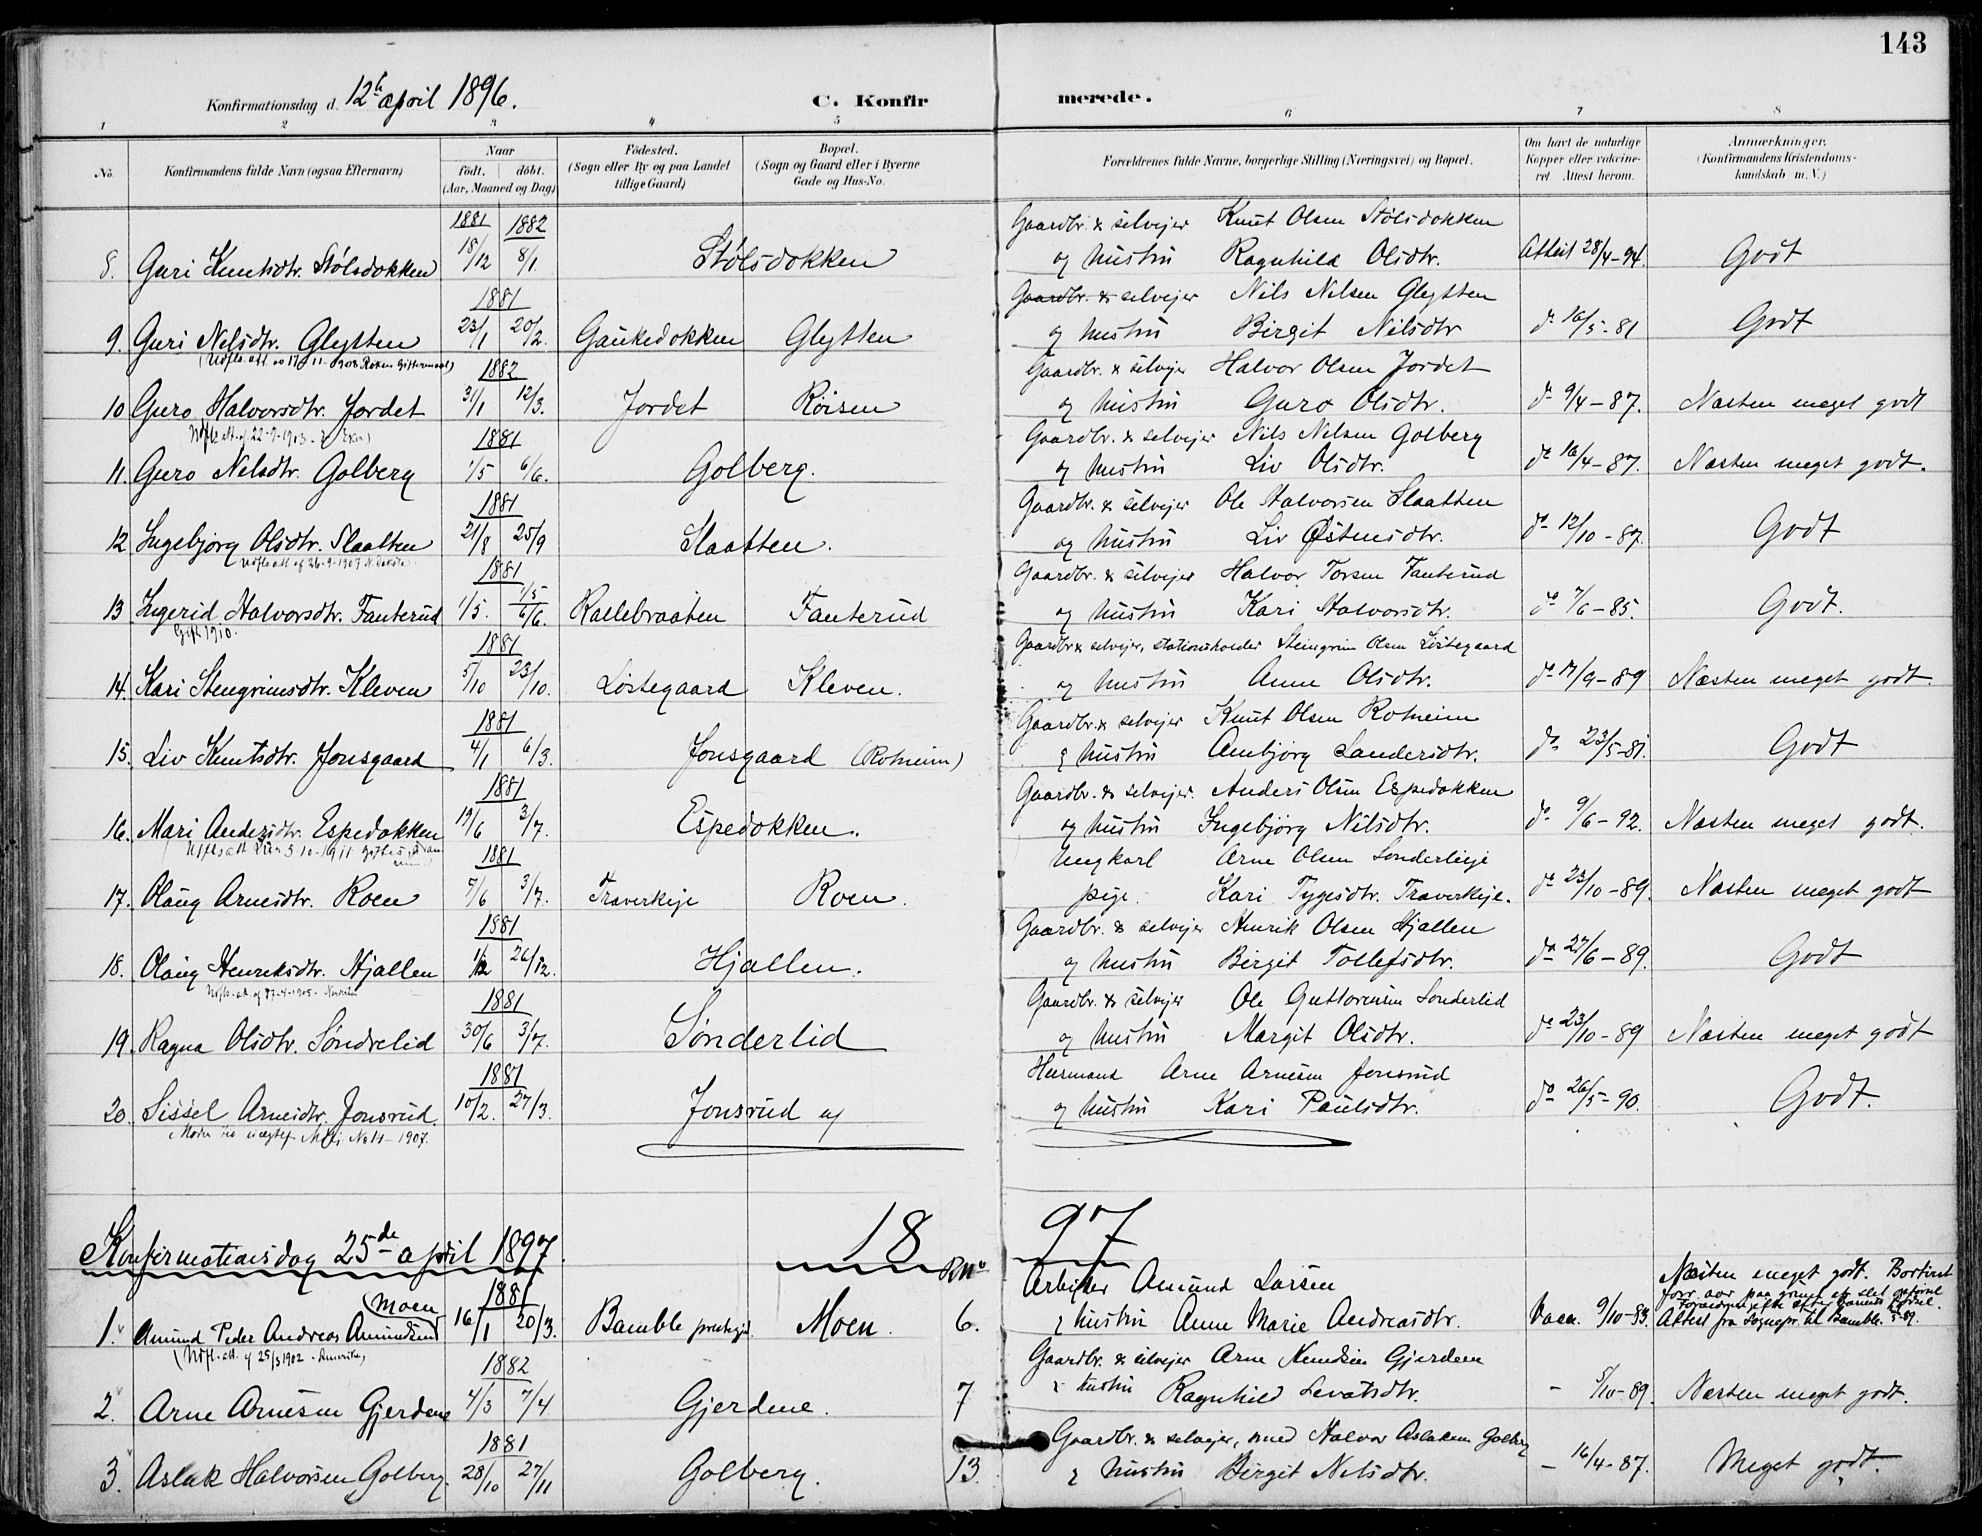 143
Konfirmationsdag d. 12te april 1896. C. Konfirmerede.
1 2 3 4 5 6 7 8
No. Konfirmandens fulde Navn (ogsaa Efternavn) Naar født. døbt. (Aar, Maaned og Dag) Fødested. (Sogn eller By og paa Landet tillige Gaard) Bopæl. (Sogn og Gaard eller i Byerne Gade og Hus-No. Forældrenes fulde Navne, borgerlige Stilling (Næringsvei) og Bopæl. Om havt de naturlige Kopper eller vakcineret. Attest herom. Anmærkninger. (Konfirmandens Kristendomskundskab m. V.)
1881 1882 Gaardbr. & selvejer Knut Olsen Stølsdokken
8. Guri Knutsdtr. Stølsdokken 18/12 8/1. Stølsdokken og hustru Ragnhild Olsdtr. Attest 28/4-94. Godt
1881 Gaardbr. & selvejer Nils Nilsen Glytten
9. Guri Nelsdtr. Glytten 23/1 20/2. Gaukedokken Glytten og hustru Birgit Nilsdtr do 16/5-81 Godt
1882 Gaardbr. & selvejer Halvor Olsen Jordet
10 Guro Halvorsdtr. Jordet 31/1 12/3. Jordet Røisen og hustru Guro Olsdtr. do 9/4-87. Næsten meget godt
1881 Gaardbr. & selvejer Nils Nelsen Golberg
11. Guro Nelsdtr. Golberg 1/5 6/6. Golberg. og hustru Liv Olsdtr. do 16/4-87. Næsten meget godt.
1881 Gaardbr. & selvejer Ole Halvorsen Slaatten
12 Ingebjørg Olsdtr. Slaatten 21/8 25/9 Slaatten. og hustru Liv Østensdtr. do 12/10-87. Godt
1881 Gaardbr. & selvejer Halvor Torsen Fanterud
13 Ingerid Halvorsdtr. Fanterud 1/5. 1/5 6/6. Rallebraaten Fanterud og hustru Kari Halvorsdtr. do 7/6-85. Godt.
Gift 1910.
1881 Gaardbr & selvejer, stationsholder Steingrim Olsen Løstegaard
14. Kari Stengrimsdtr. Kleven 5/10 23/10. Løstegaard Kleven. og hustru Anne Olsdtr. do 17/9-89 Næsten meget godt.
1881 Gaardbr. & selvejer Knut Olsen Rotneim
15. Liv Knutsdtr. Jonsgaard 4/1 6/3. Jonsgaard (Rotneim) & hustru Anbjørg Sandersdtr. do 23/5-81. Godt
1881 Gaardbr. & selvejer. Anders Olsen Espedokken
16. Mari Andersdtr. Espedokken 19/6 3/7. Espedokken. og hustru Ingebjørg Nilsdtr. do 9/6-92. Næsten meget godt.
1881 Ungkarl Arne Olsen Sonderlieje
17. Olaug Arnesdtr. Roen 7/6 3/7. Traverkeje Roen. pige. Kari Tygesdtr. Traverkeje. do 23/10-89. Næsten meget godt
1881 Gaardbr. & selvejer Henrik Olsen Hjallen
18. Olaug Henriksdtr. Hjallen 1/12 26/12. Hjallen. og hustru Birgit Tollefsdtr. do 27/6-89. Godt
1881 Gaardbr. & selvejer Ole Guttormsen Sonderlid
19. Ragna Olsdtr. Søndrelid 30/6 3/7. Sønderlid og hustru Margit Olsdtr. do 23/10-89 Næsten meget godt
1881 Husmand Arne Arnesen Jonsrud
20. Sissel Arnesdtr. Jonsrud. 10/2. 27/3. Jonsrud ej og hustru Kari Paulsdtr. do 26/5-90. Godt.
Konfirmationsdag 25de april 1897. 18 97
1881 Arbeider Amund Larsen Næsten meget godt.
Moen
1. Amund Peder Andreas Amundsen 16/1 20/3. Bamble prestegj. Moen. 6. & hustru Anne Marie Andreasdtr. Vacc. 9/10-83. Attest fra Sognepr. til Bamble.
(Udfl. att. af 25/3 1902 - Amerika)
1882 Gaardbr. & selvejer Arne Knudsen Gjerdene
2. Arne Arnesen Gjerdene 4/3 7/4. Gjerdene. 7 & hustru Ragnhild Sevatsdtr. - 5/10-89. Næsten meget godt.
1881 Gaardbr. & selvejer, smed Halvor Aslaksen Golberg
3. Aslak Halvorsen Golberg. 28/10 27/11 Golberg. 13. & hustru Birgit Nelsdtr. - 16/4-87. Meget godt.